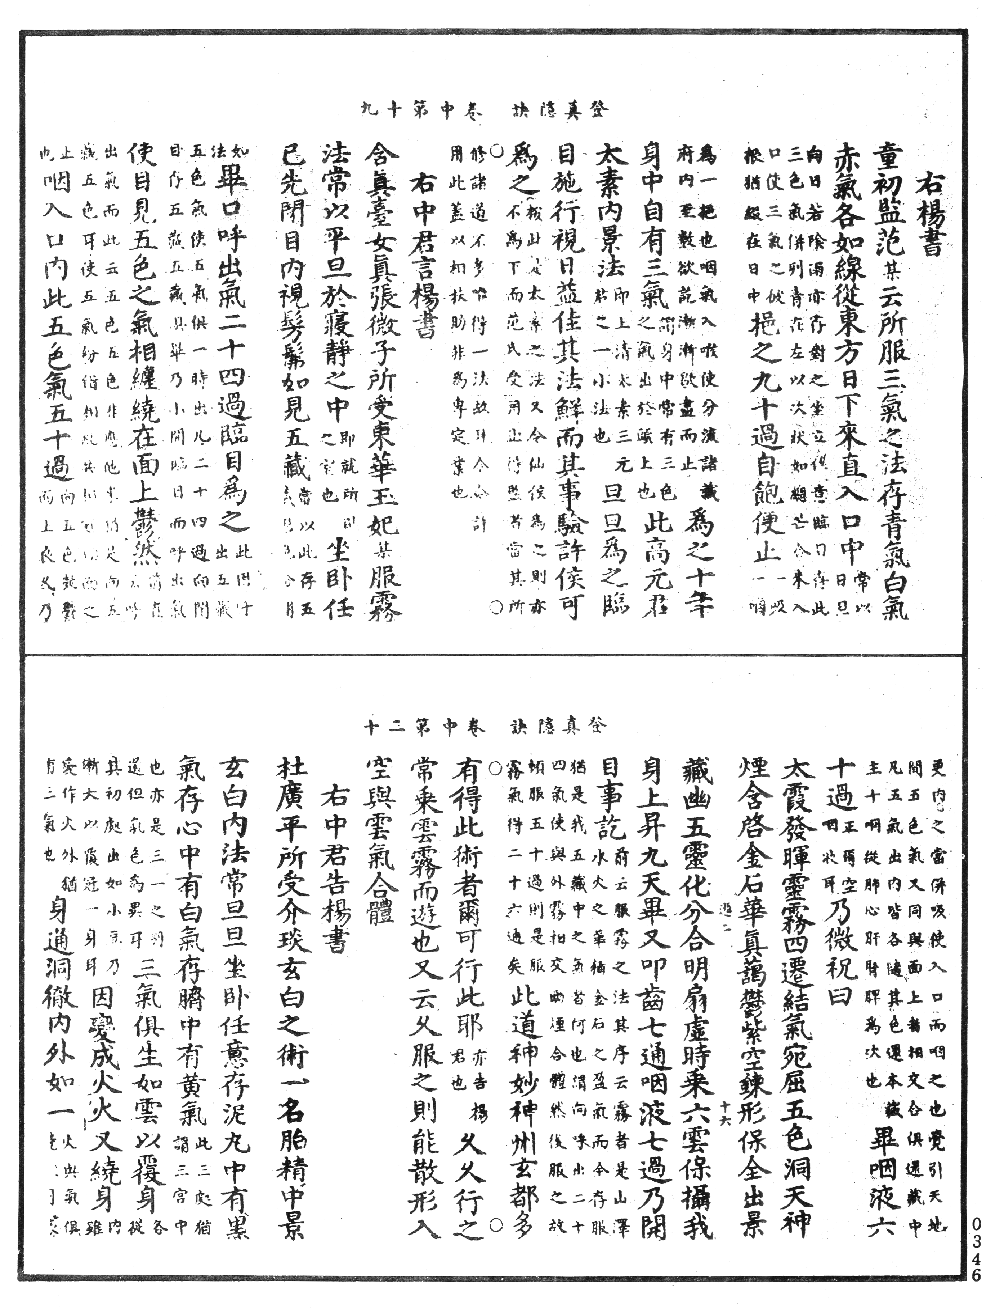 登真隱訣 卷中第十九
右楊書
童初監范某云所服三氣之法存青氣白氣
赤氣各如綖從東方日下來直入口中常以日旦
向日若陰濁亦存對之坐立但意臨日存此
三色氣併列青在左以次狀如類芒合來入
口使三氣之狀一吸
根猶綴在日中挹之九十過自飽便止一嚥
為一挹也咽氣入喉使分流諸藏為之十年
府內至數欲訖漸漸歇盡而止
身中自有三氣謂身中常有三色之氣出於頭上也此高元君
太素內景法君之一小法也即上清太素三元旦旦為之臨
目施行視日益佳其法鮮而其事驗許侯可
為之按此是太素之法又令仙侯為之則亦
不為下而范氏受用出得監者當其所
修諸道不多唯得一法故耳今令許
用此蓋以相扶助非為專定業也
右中君言楊書
含真臺女真張微子所受東華玉妃某服霧
法常以平旦於寢靜之中即就所臥之室也坐臥任
已先閉目內視髣髴如見五藏
如法畢口呼出氣二十四過臨目為之
五色氣使五氣俱一時出凡二十四過向閉
目存五藏五藏具畢乃小開臨目而呼出氣
使目見五色之氣相纏繞在面上鬱然
出氣而此云五色五色
藏五色耳使五氣紛錯
止也咽入口內此五色氣五十過
登真隱訣 卷中第二十
更內之當併吸使入口而咽之也覺引天地
間五色氣又同與面上者相交合俱還藏中
凡五氣出內皆各隨其色還本藏
主十咽從肺心肝腎脾為次也畢咽液六
十過正爾空咽狀耳乃微祝曰
太霞發暉靈霧四遷結氣宛屈五色洞天神
煙含啓金石華真藹鬱紫空鍊形保全出景
藏幽五靈化分合明扇虛時乘六雲保攝我
身上昇九天畢又叩齒七通咽液七過乃開
目事訖前云服霧之法其序云霧者是山澤
水火之華精金石之盈氣而今存服
猶是我五藏中之氣者何也謂向呼出二十
四氣使與外霧相交曲煙合體然後服之故
頓服五十過則是服
霧氣得二十六通矣此道神妙神州玄都多
有得此術者爾可行此耶亦告楊君也久久行之
常乘雲霧而遊也又云久服之則能散形入
空與雲氣合體
右中君告楊書
杜廣平所受介琰玄白之術一名胎精中景
玄白內法常旦旦坐臥任意存泥丸中有黑
氣存心中有白氣存臍中有黃氣此三處猶謂三宮中
也亦是三一之別
還但氣色為異耳三氣俱生如雲以覆身各從
其初處出如小豆乃
漸大以覆冠一身耳因變成火火又繞身內雖
變作火外猶
有三氣也身通洞徹內外如一火與氣俱
0346